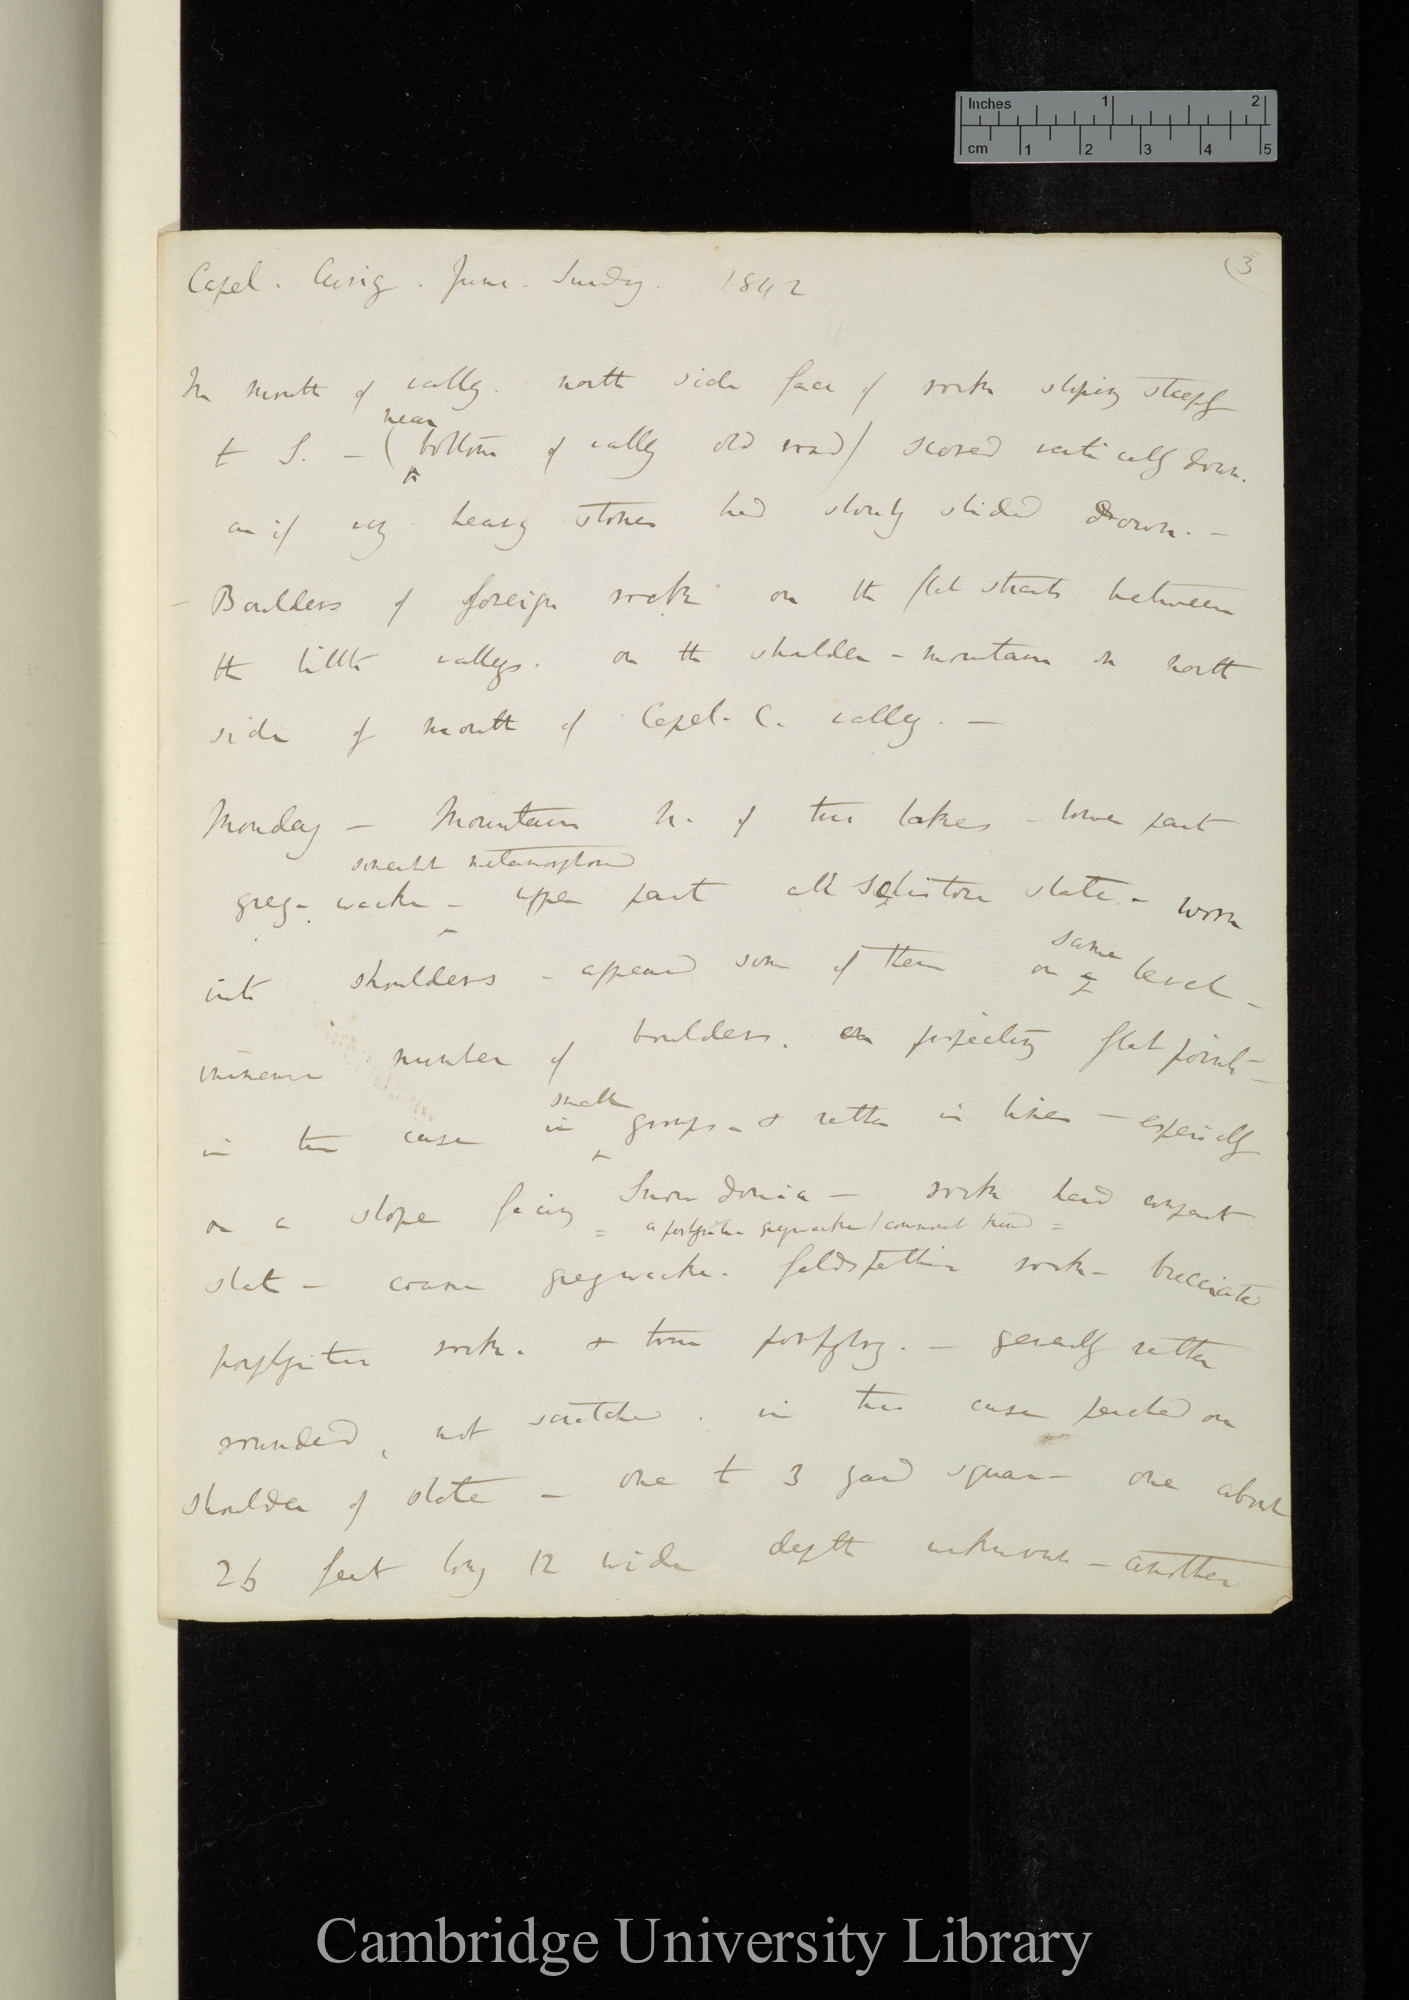 Inches 1 2
cm 1 2 3 4 5
(3
Capel. Curig. June. Sunday. 1842
In mouth of valley. north side face of rock sloping steeply
near
to S. — (bottom of valley old road) scored vertically down.
as if very heavy stones had slowly slided down. —
— Boulders of foreign rock on the flat straits between
the little valleys. on the shoulder-mountain on north
side of mouth of Capel. C. valley. —
Monday — Mountain N. of two lakes — lower part
somewhat metamorphosed
grey-wacke — upper part all Schistose slate — worn
same
into shoulders — appeared some of them on level —
immense number of boulders. on projecting flat points —
small
in this case in groups — & rather in lines — especially
on a slope facing Snowdonia — rock hard compact
= a porphyritic greywacke / commonest kind =
slate — coarse greywacke. feldspathic rock — brecciated
porphyritic rock. & true porphyry. — generally rather
rounded, not scratched. in this case perched on
shoulder of slate — one to 3 yard square — one about
26 feet long 12 wide depth unknown — another
Cambridge University Library